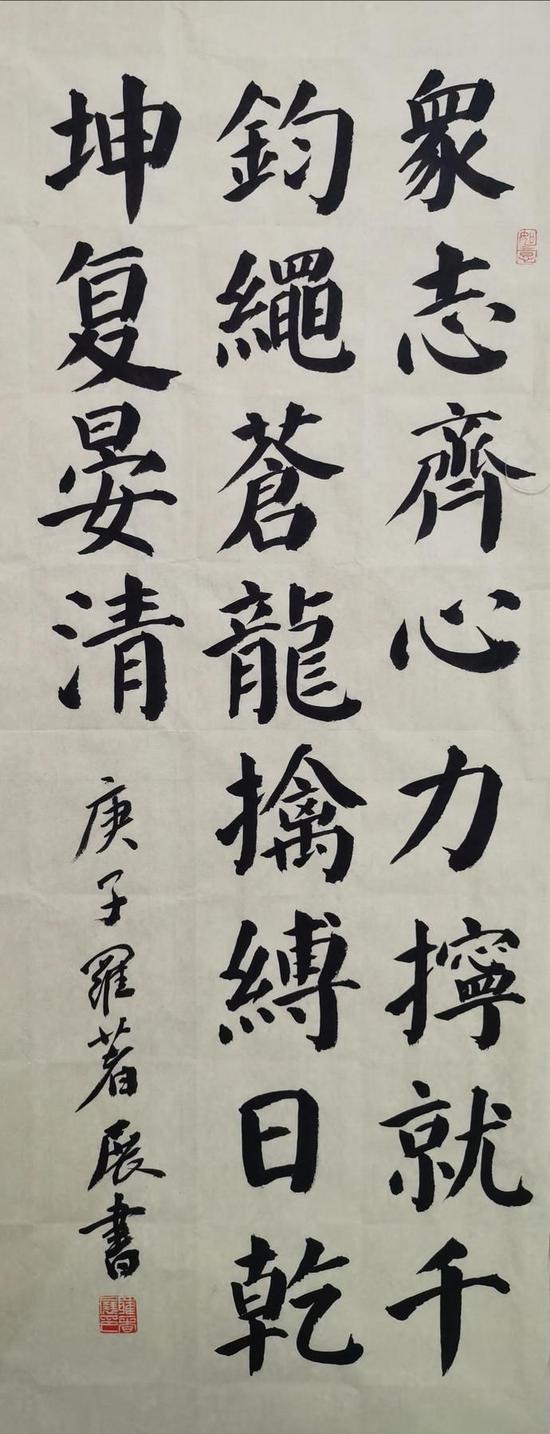 眾志齊心力擰就千
鈞繩蒼龍擒縛日乾
坤复晏清
庚子羅著展書
如意